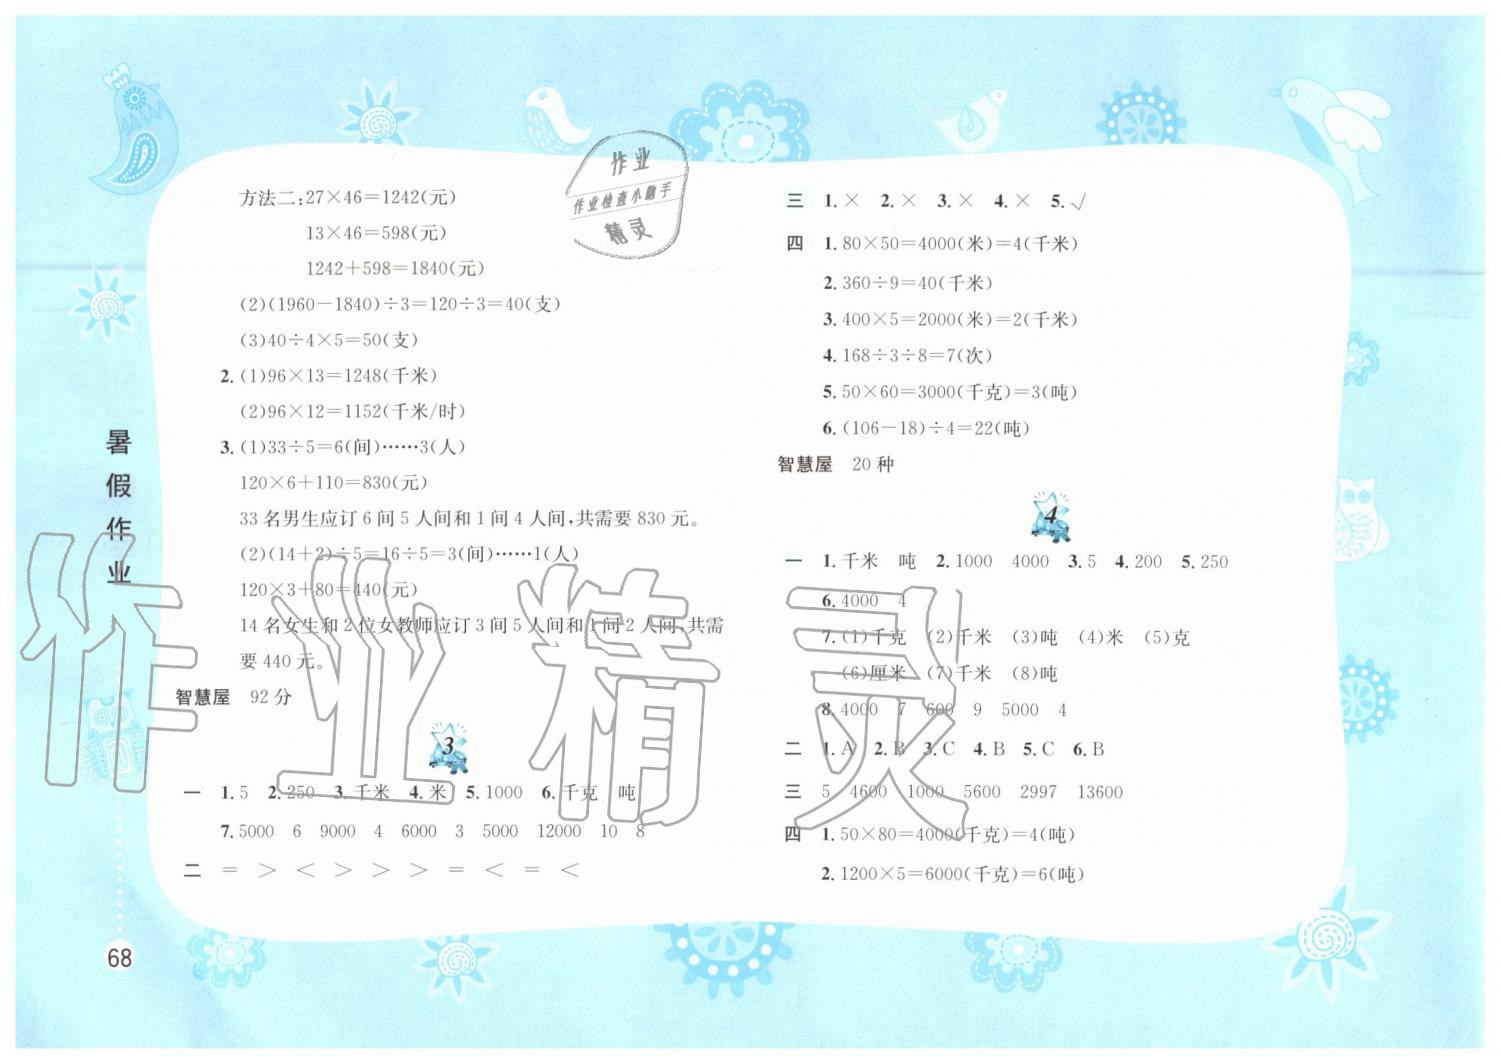 方法二:27×46=1242(元)
13×46=598(元)
1242+598=1840(元)
(2)(1960-1840)÷3=120÷3=40(支)
(3)40÷4×5=50(支)
2. (1)96×13=1248(千米)
(2)96×12=1152(千米/时)
3. (1)33÷5=6(间)……3(人)
120×6+110=830(元)
33名男生应订6间5人间和1间4人间,共需要830元。
(2)(14+2)÷5=16÷5=3(间)……1(人)
120×3+80=440(元)
14名女生和2位女教师应订3间5人间和1间2人间,共需
要440元。
智慧屋 92分
3
一 1. 5 2. 250 3. 千米 4. 米 5. 1000 6. 千克 吨
7. 5000 6 9000 4 6000 3 5000 12000 10 8
二 = > < > > > = < = <
三 1. × 2. × 3. × 4. × 5. √
四 1. 80×50=4000(米)=4(千米)
2. 360÷9=40(千米)
3. 400×5=2000(米)=2(千米)
4. 168÷3÷8=7(次)
5. 50×60=3000(千克)=3(吨)
6. (106-18)÷4=22(吨)
智慧屋 20种
4
一 1. 千米 吨 2. 1000 4000 3. 5 4. 200 5. 250
6. 4000 4
7. (1)千克 (2)千米 (3)吨 (4)米 (5)克
(6)厘米 (7)千米 (8)吨
8. 4000 7 600 9 5000 4
二 1. A 2. B 3. C 4. B 5. C 6. B
三 5 4600 1000 5600 2997 13600
四 1. 50×80=4000(千克)=4(吨)
2. 1200×5=6000(千克)=6(吨)
暑假作业
68
作业
作业检查小助手
精灵
作业精灵